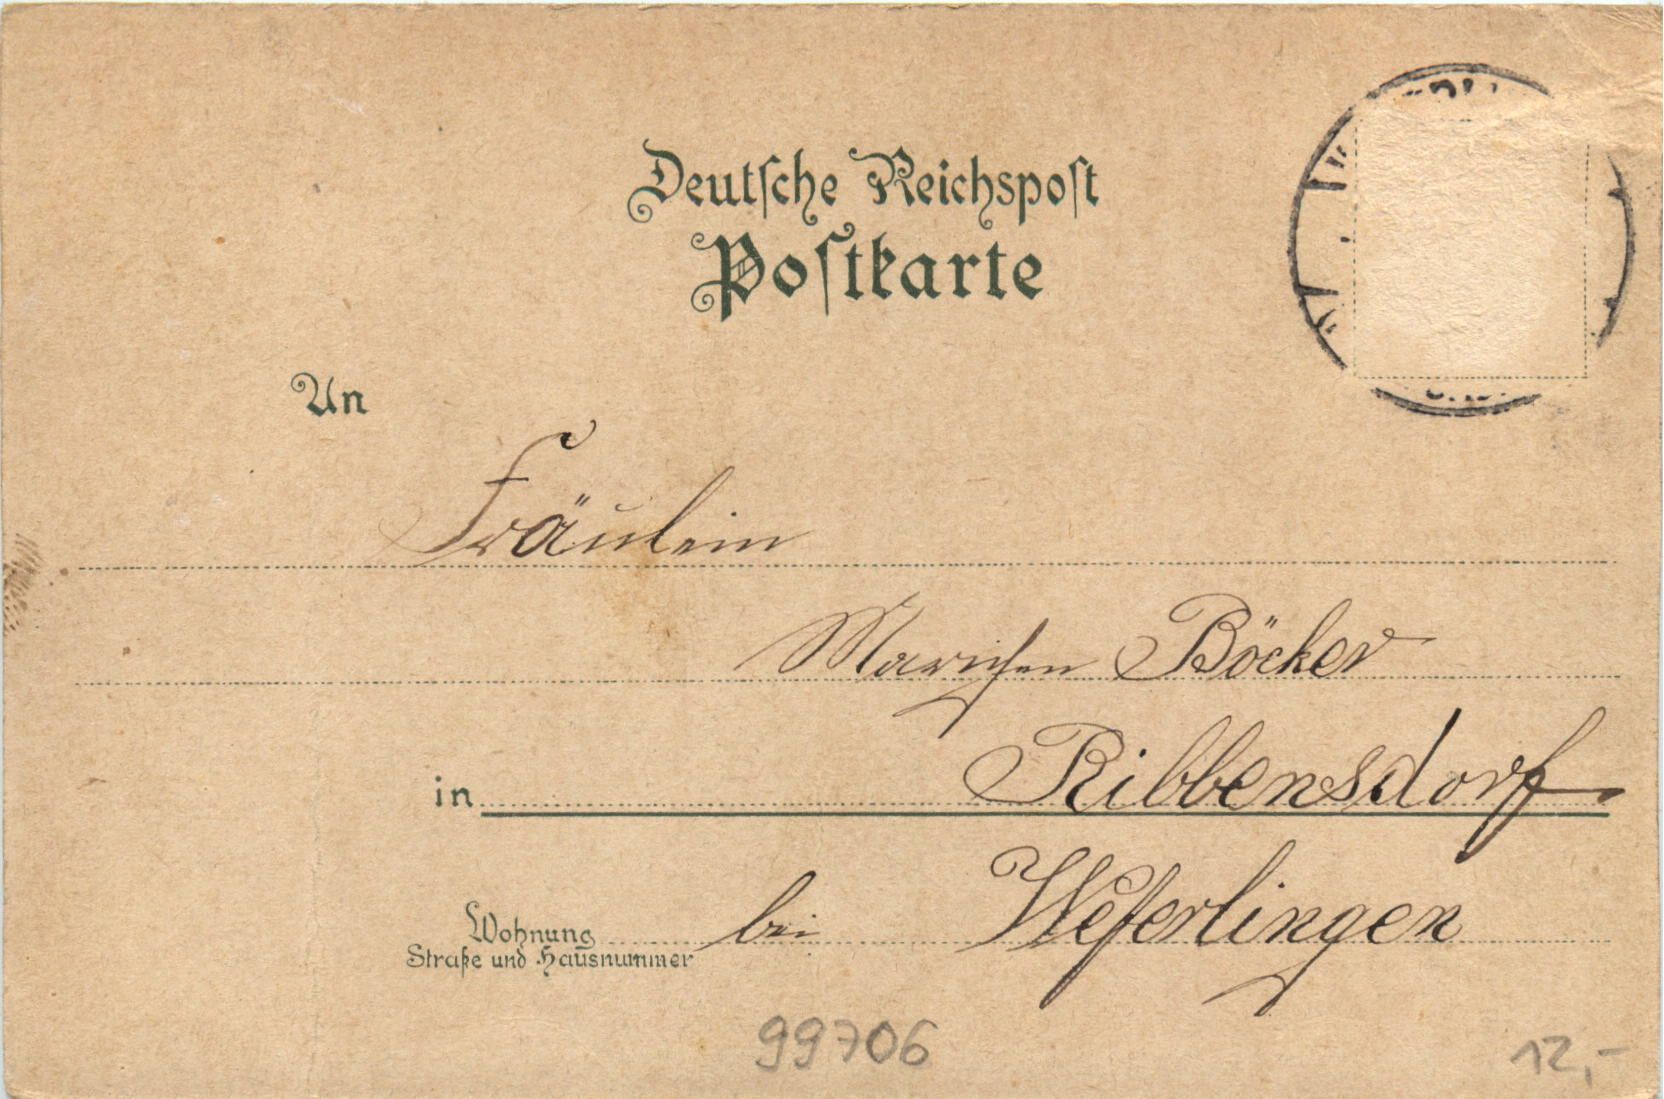 Deutsche Reichspost
Postkarte
An
Fräulein
Mariechen Böcker
in Ribbensdorf
Wohnung bei Weferlingen
Straße und Hausnummer
99706
12,-